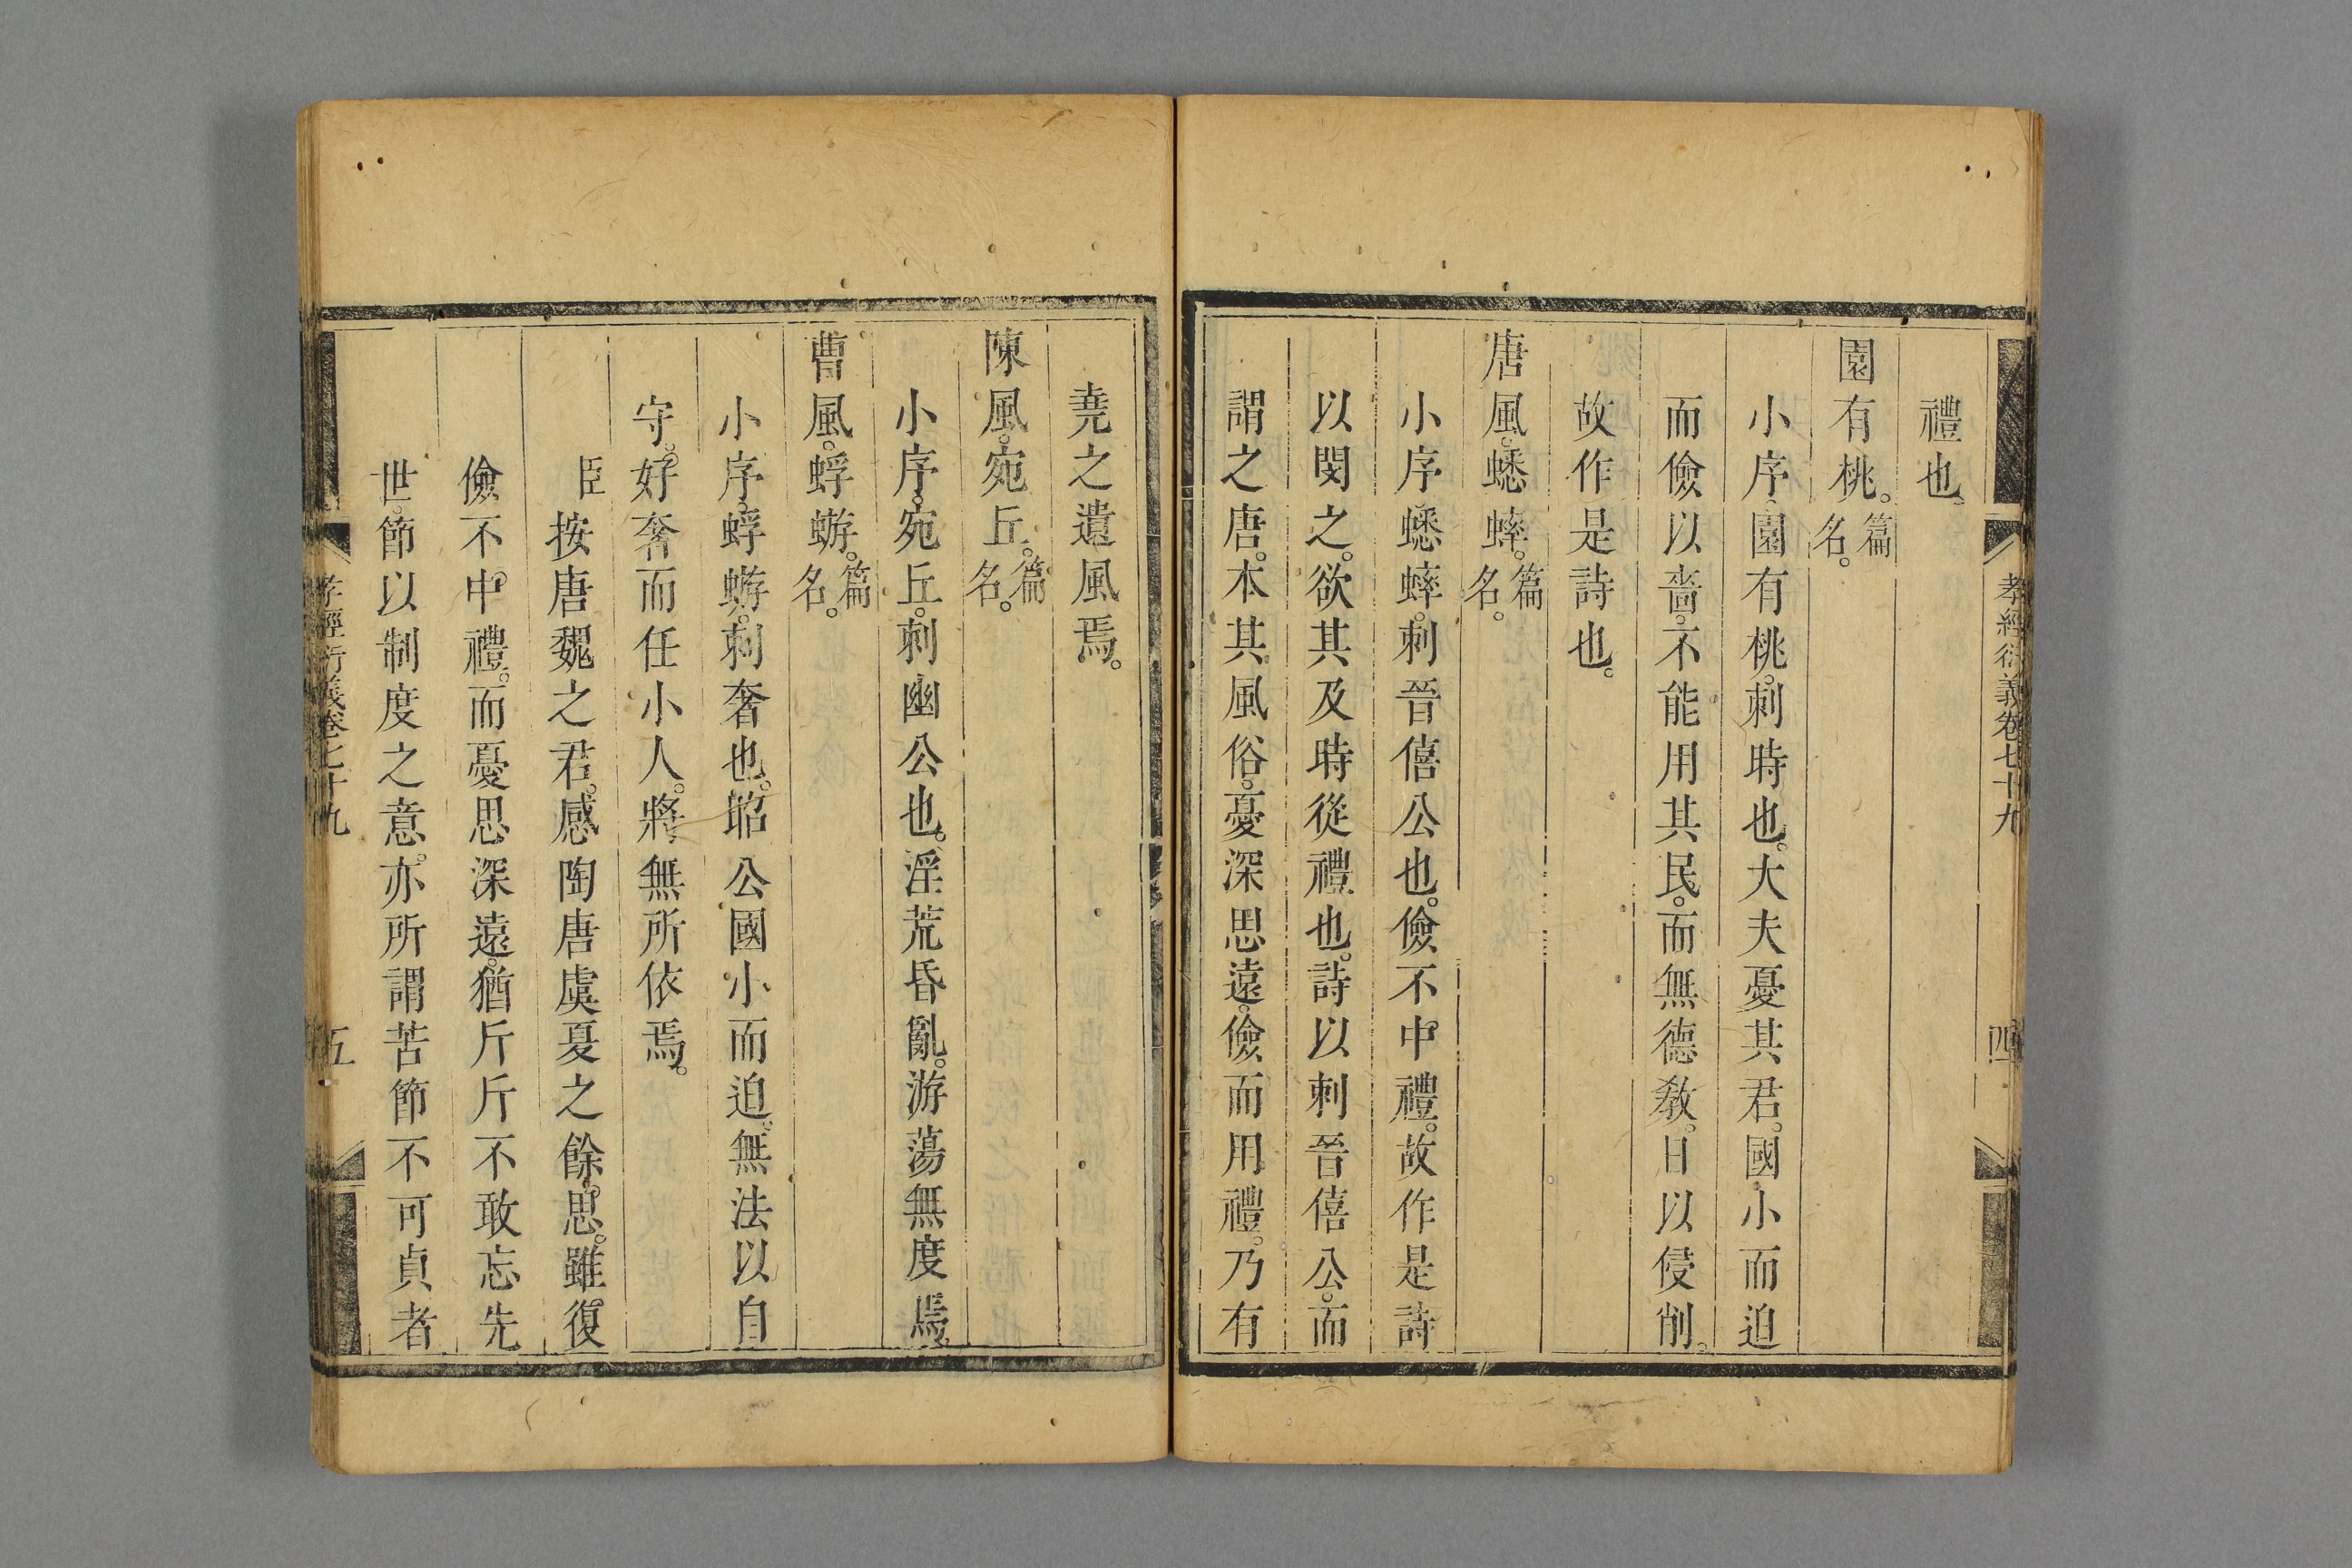 孝經衍義卷七十九
四
禮也。
園有桃。篇名。
小序。園有桃。刺時也。大夫憂其君。國小而迫
而儉以嗇。不能用其民。而無德教。日以侵削。
故作是詩也。
唐風。蟋蟀。篇名。
小序。蟋蟀。刺晉僖公也。儉不中禮。故作是詩
以閔之。欲其及時從禮也。詩以刺晉僖公。而
謂之唐。本其風俗。憂深思遠。儉而用禮。乃有
堯之遺風焉。
陳風。宛丘。篇名。
小序。宛丘。刺幽公也。淫荒昏亂。游蕩無度焉。
曹風。蜉蝣。篇名。
小序。蜉蝣。刺奢也。昭公國小而迫。無法以自
守。好奢而任小人。將無所依焉。
臣按唐魏之君。感陶唐虞夏之餘思。雖復
儉不中禮。而憂思深遠。猶斤斤不敢忘先
世。節以制度之意。亦所謂苦節不可貞者
孝經衍義卷七十九
五